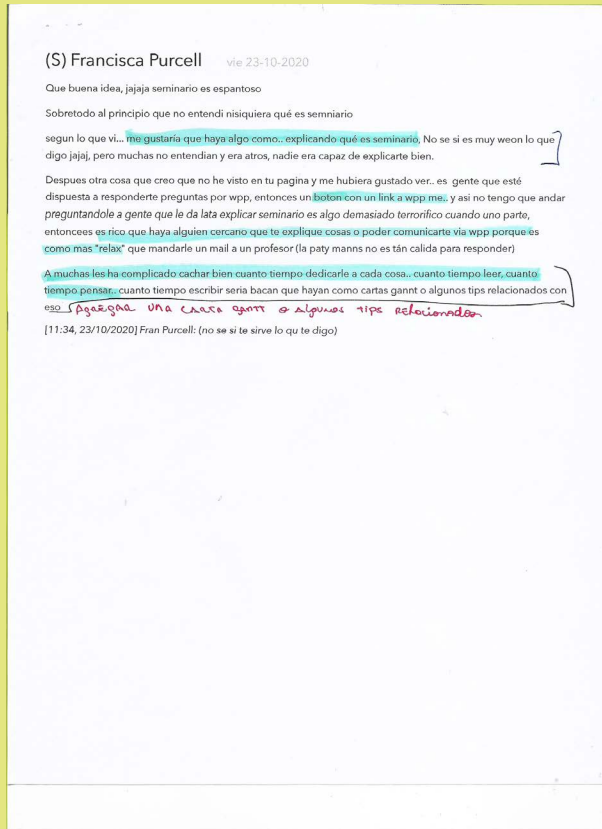 (S) Francisca Purcell vie 23-10-2020
Que buena idea, jajaja seminario es espantoso
Sobretodo al principio que no entendi nisiquiera qué es semniario
segun lo que vi... me gustaría que haya algo como.. explicando qué es seminario, No se si es muy weon lo que
digo jajaj, pero muchas no entendian y era atros, nadie era capaz de explicarte bien.
Despues otra cosa que creo que no he visto en tu pagina y me hubiera gustado ver.. es gente que esté
dispuesta a responderte preguntas por wpp, entonces un boton con un link a wpp me.. y asi no tengo que andar
preguntandole a gente que le da lata explicar seminario es algo demasiado terrorifico cuando uno parte,
entoncees es rico que haya alguien cercano que te explique cosas o poder comunicarte via wpp porque es
como mas "relax" que mandarle un mail a un profesor (la paty manns no es tán calida para responder)
A muchas les ha complicado cachar bien cuanto tiempo dedicarle a cada cosa.. cuanto tiempo leer, cuanto
tiempo pensar.. cuanto tiempo escribir seria bacan que hayan como cartas gannt o algunos tips relacionados con
eso Agregar una carta gantt o algunos tips relacionados
[11:34, 23/10/2020] Fran Purcell: (no se si te sirve lo qu te digo)